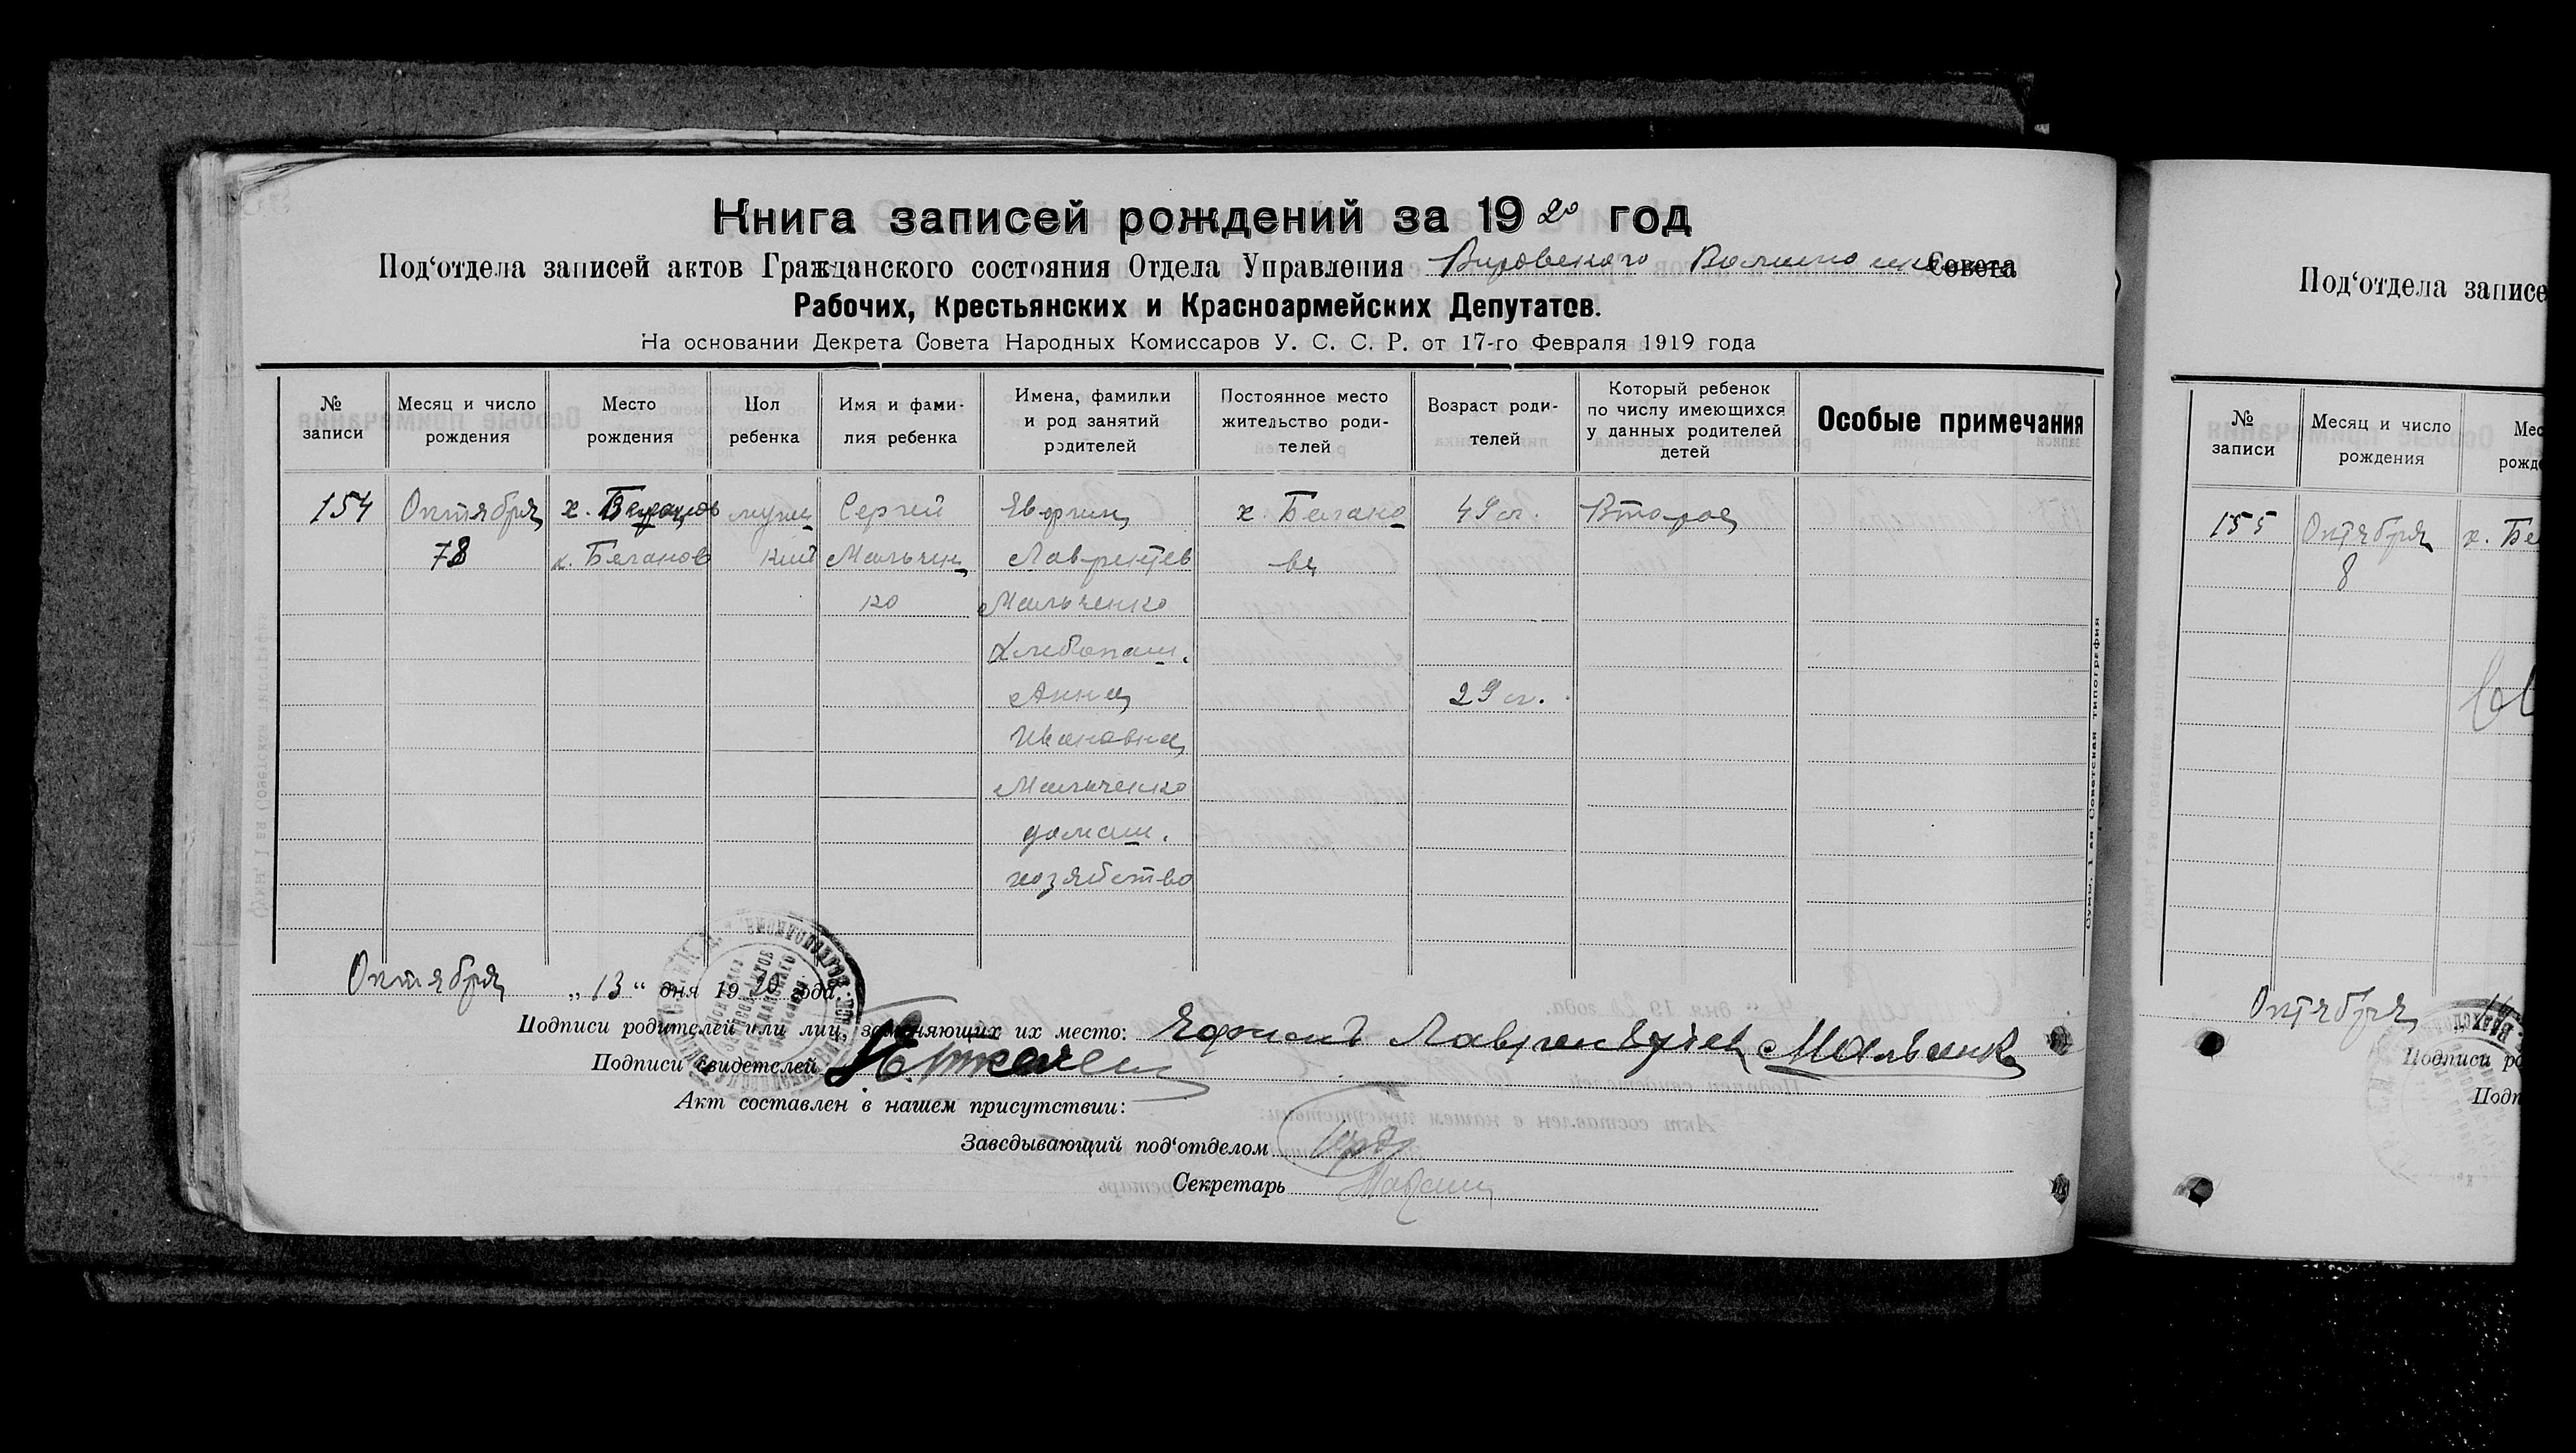 Книга записей рождений за 1920 год
Под‘отдела записей актов Гражданского состояния Отдела Управления Вировского Совета
Рабочих, Крестьянских и Красноармейских Депутатов.
На основании Декрета Совета Народных Комиссаров У. С. С. Р. от 17-го Февраля 1919 года
№ записи
Месяц и число рождения
Место рождения
Пол ребенка
Имя и фамилия ребенка
Имена, фамилии и род занятий родителей
Постоянное место жительство родителей
Возраст родителей
Который ребенок по числу имеющихся у данных родителей детей
Особые примечания
154 Октября х. Сергей х. Белано 49 л. Второй
х. Беланов Мальчен Лаврентев ва
ко Мальченко
хлебопаш.
Анна 29 л.
Ивановна
Мальченко
домаш.
хозяйство
Октября „13“ дня 1920 года.
Подписи родителей или лиц, заменяющих их место: Лаврентьевич Мальченко
Подписи свидетелей
Акт составлен в нашем присутствии:
Заведывающий под‘отделом
Секретарь
Сумы. 1-ая Советская типография
Под‘отдела записе
№ записи
Месяц и число рождения
Мес
рожде
155 Октября х. Бе
8
Октября
Подписи ро
Подп